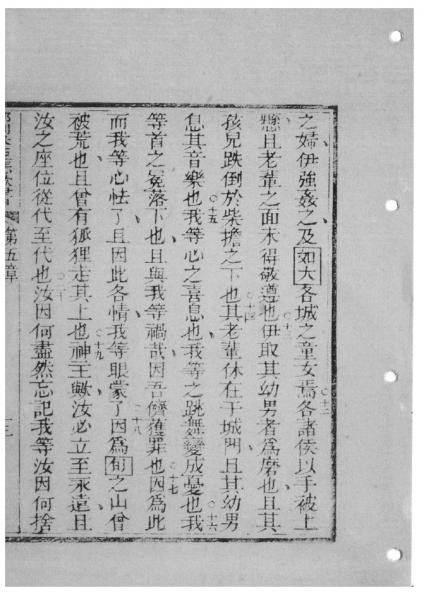 之婦伊強姦之及如大各城之童女焉各諸侯以手被上
懸且老輩之面未得敬遵也伊取其幼男者為磨也且其
孩兒跌倒於柴擔之下也其老輩休在于城門且其幼男
息其音樂也我等心之喜息也我等之跳舞變成憂也我
等首之冕落下也且與我等禍哉因吾儕獲罪也因為此
而我等心怯了且因此各情我等眼蒙了因為旬之山曾
被荒也且曾有狐狸走其上也神主歟汝必立至永遠且
汝之座位從代至代也汝因何盡然忘記我等汝因何捨
第五章